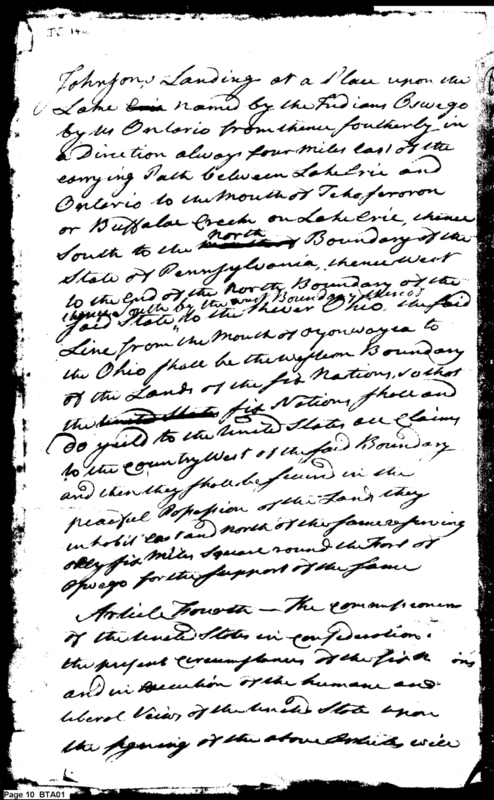 Johnsons Landing at a Place upon the
Lake Erie named by the Indians Oswego
by us Ontario from thence southerly in
a Direction always four miles east of the
carrying Path between Lake Erie and
Ontario to the Mouth of Tehoseroron
or Buffaloe Creek on Lake Erie, thence
South to the north Boundary of the
State of Pennsylvania, thence West
to the End of the North Boundary of the
thence south by the west Boundary thereof
said State to the River Ohio the said
Line from the Mouth of Oyonwayea to
the Ohio shall be the western Boundary
of the Lands of the six Nations, so that
the United States six Nations shall and
do yeild to the United States all Claims
to the Country West of the said Boundary
and then they shall be secured in the
peaceful Possession of the Lands they
inhabit east and north of the same reserving
only six Miles Square round the Fort of
Oswego for the support of the same
Article Fourth — The commissioners
of the United States in consideration
the present circumstances of the six N ions
and in execution of the humane and
liberal Views of the United State upon
the signing of the above Articles will
Page 10 BTA01